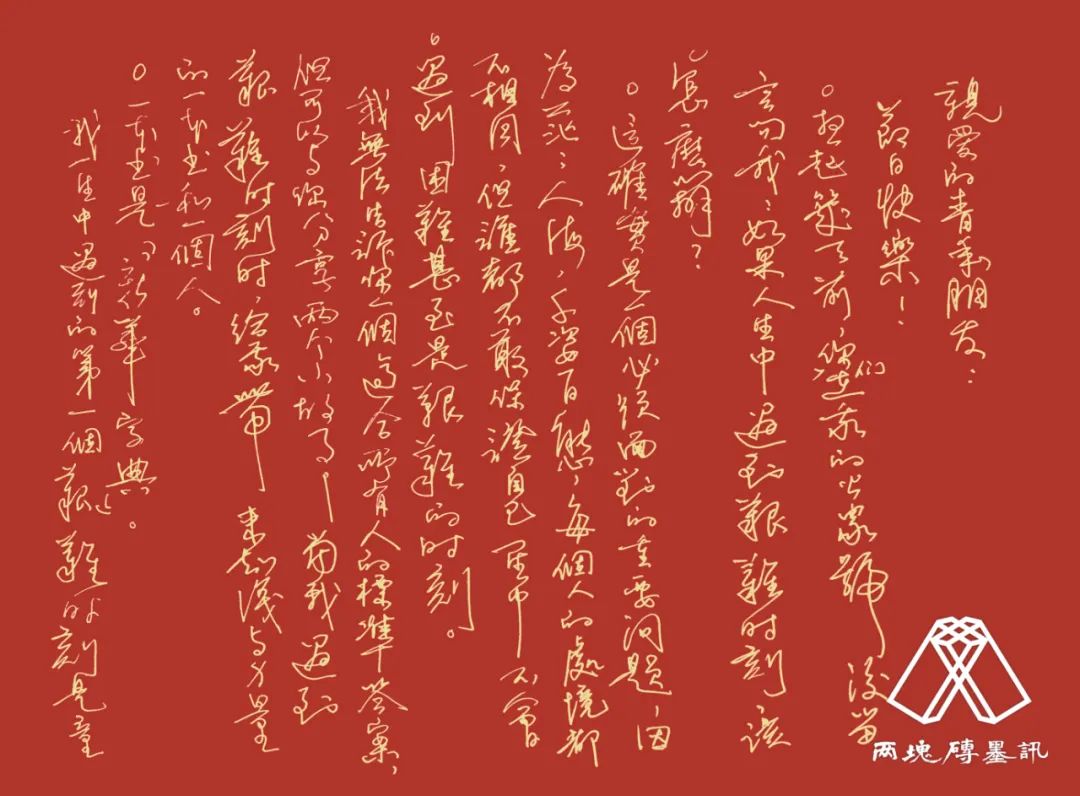 親愛的青年朋友：
節日快樂！
幾天前，你们在我的公眾號後留
言問我：如果人生中遇到艱難時刻，該
怎麽辦？
這確實是一個必須面對的重要问題，因
為茫茫人海，千姿百態，每個人的處境都
不相同，但誰都不敢保證自己一生中不會
遇到困難甚至是艱難的时刻。
我無法告訴你一個適合所有人的標準答案，
但可以与你分享两个小故事——當我遇到
艱難时刻时，给我帶來知識与力量
的一本书和一個人。
一本书是《新華字典》。
我一生中遇到的第一個艱難时刻是童
两塊磚墨訊